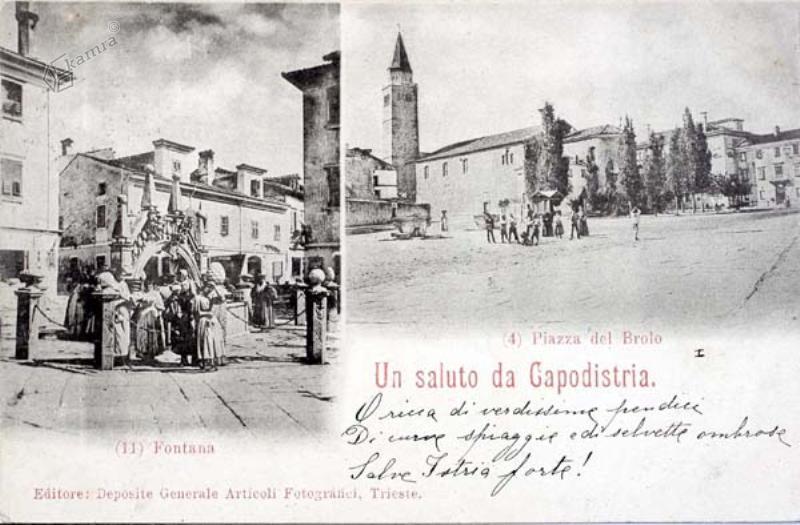 kamra ©
(4) Piazza del Brolo
Un saluto da Capodistria.
O ricca di verdissime pendici
Di curve spiaggie e di selvette ombrose
Salve Istria forte!
(11) Fontana
Editore: Deposite Generale Articoli Fotografici, Trieste.